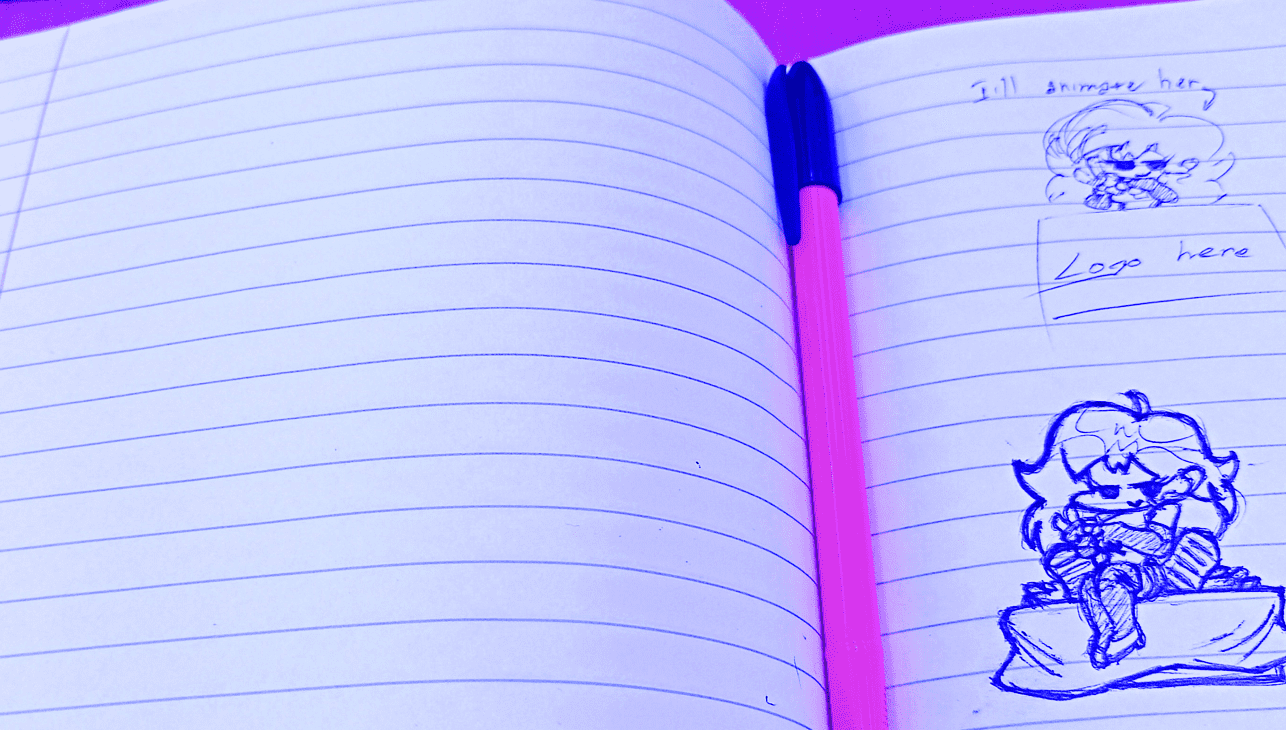 I'll animate her
Logo here